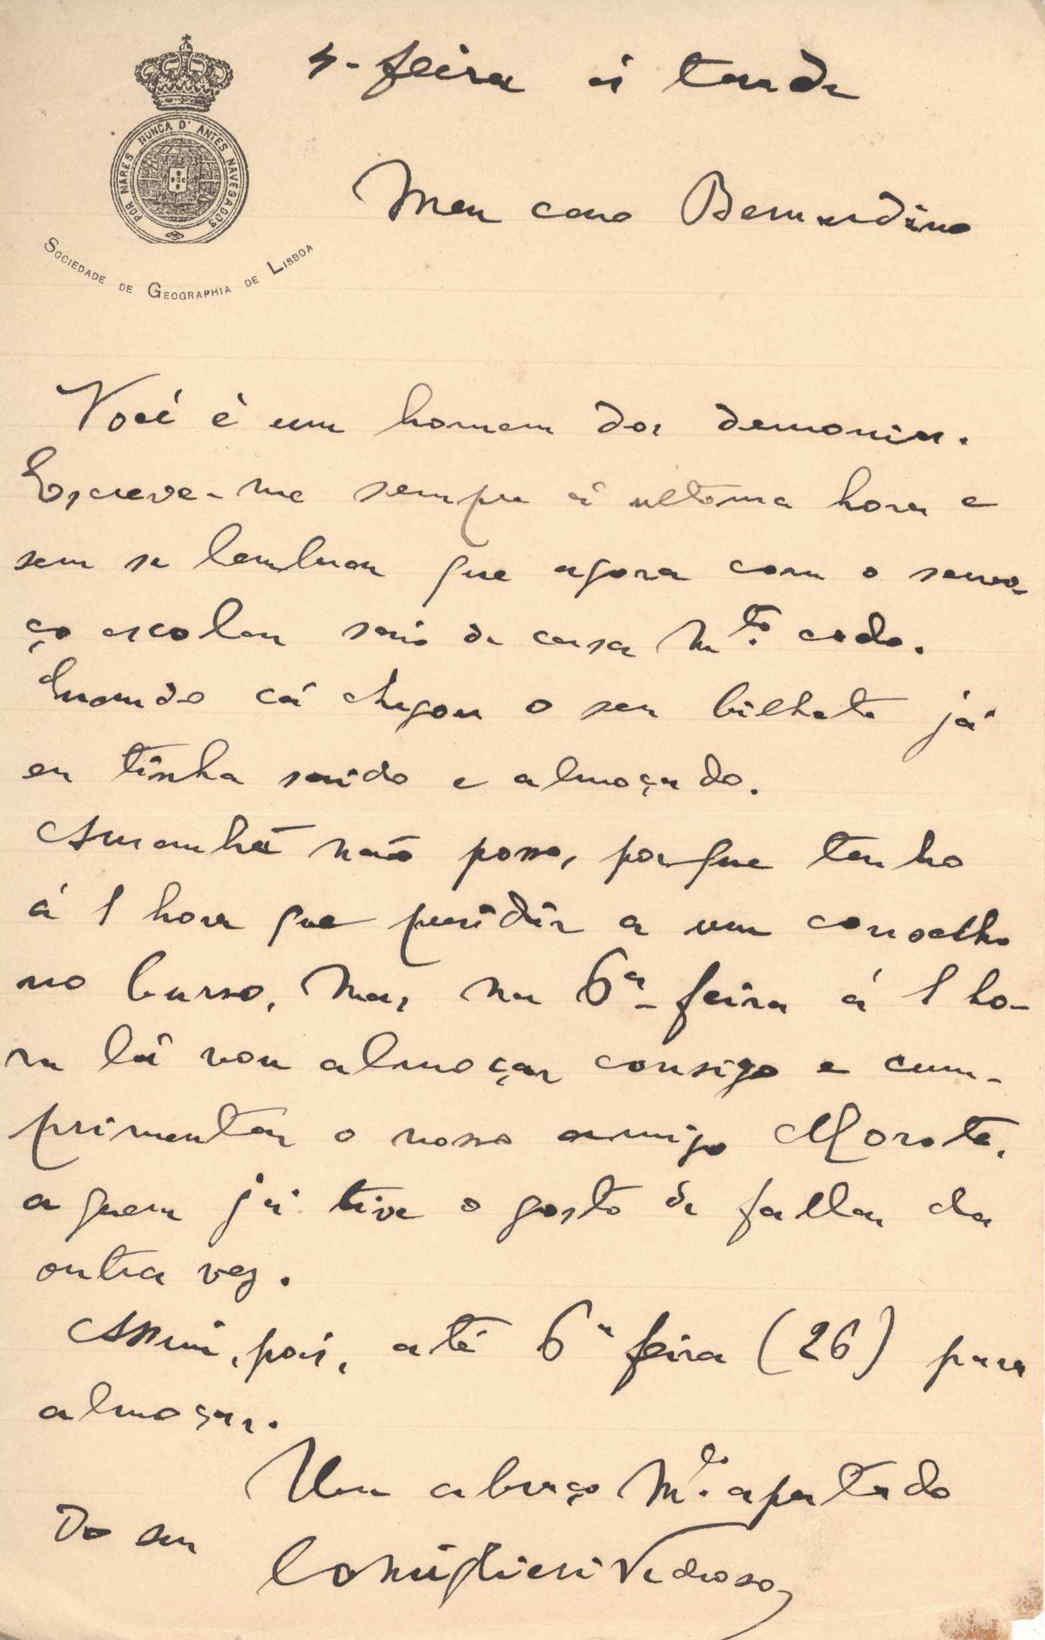 4-feira á tarde
POR MARES NUNCA D'ANTES NAVEGADOS
SOCIEDADE DE GEOGRAPHIA DE LISBOA
Meu caro Bernardino
Você é um homem dos demonios.
Escreve-me sempre á ultima hora e
sem se lembrar que agora com o servi-
ço escolar saio de casa m.to cedo.
Quando cá chegou o seu bilhete já
eu tinha saido e almoçado.
Amanhã não posso, porque tenho
á 1 hora que presidir a um conselho
no Curso. Mas, na 6a-feira á 1 ho-
ra lá vou almoçar consigo e cum-
primentar o nosso amigo Morote,
a quem já tive o gosto de fallar da
outra vez.
Assim, pois, até 6a feira (26) para
almoçar.
Um abraço m.to apertado
do seu
Consiglieri Pedroso